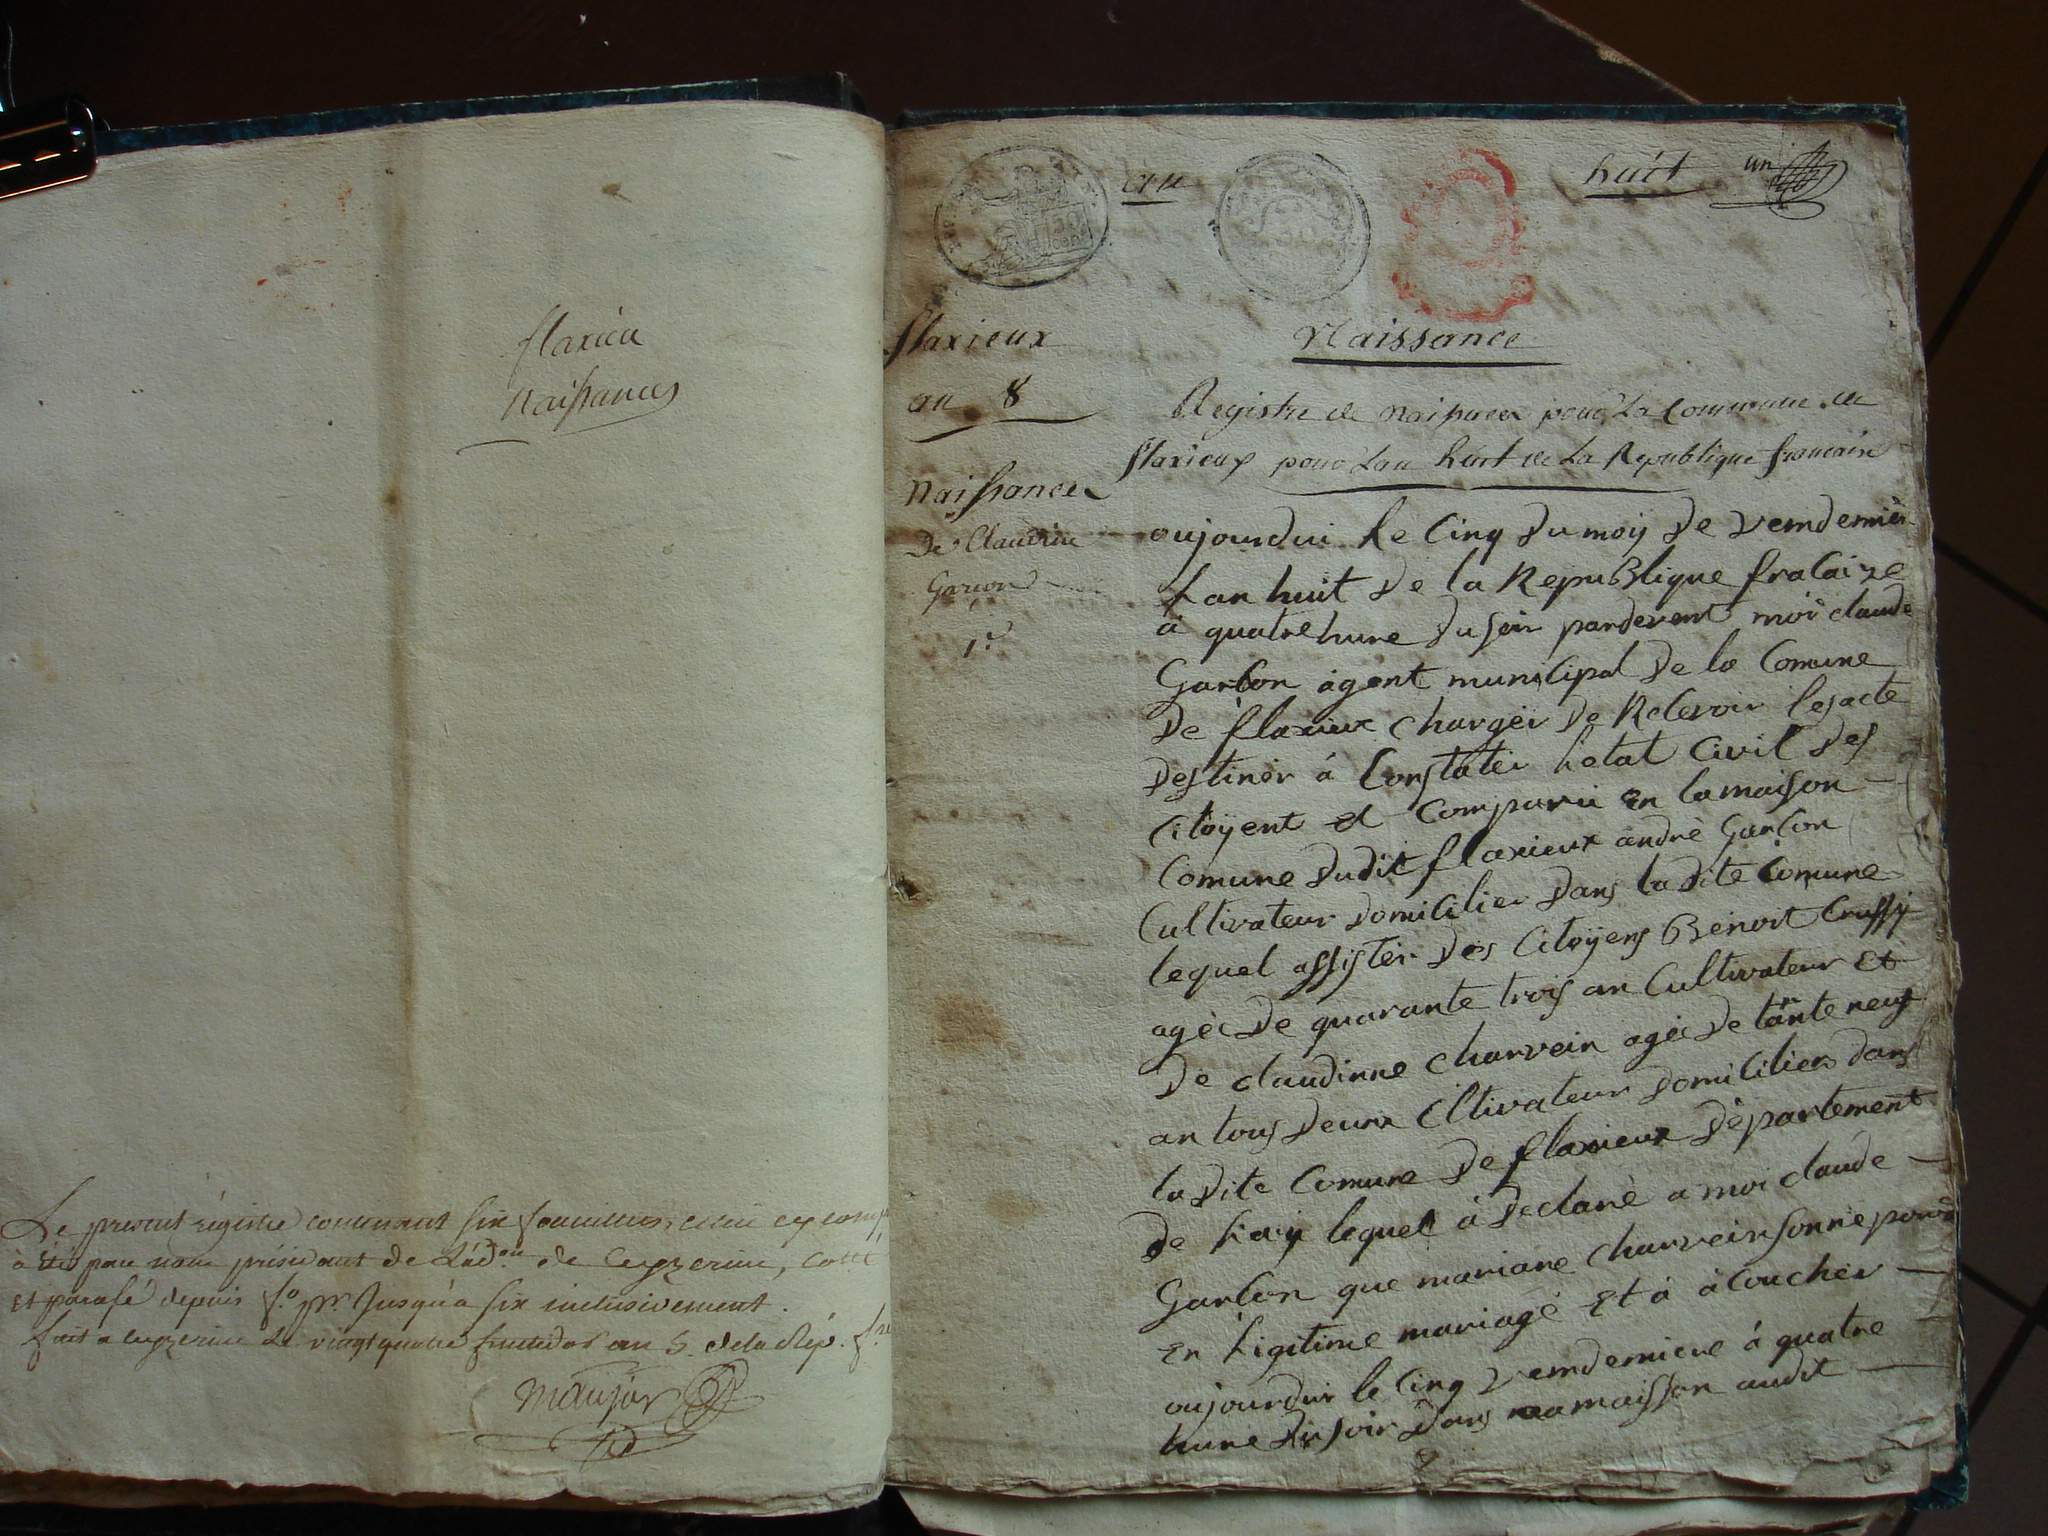 flaxieu
Naissances
Le present régistre contenant six feuillets, celui cy compris
à été par nous président de L'ad.on de Ceyzerieu, cotté
et parafé depuis f.o p.r Jusqu'a six inclusivement.
fait a ceyzerieu Le vingt quatre fructidor an de la Rép. f.se
an
huit un
flaxieux
an 8
Naissance
Naissance
De Claudine
Garçon
1.e
Registre de naissance pour La Commune de
flaxieux pour Lan huit de La Republique francaise
oujourdui Le Cinq du moÿ De Vemdemier
Lan huit De la RepuBlique fracaize
à quatre hure du soir pardevent moi claude
Garcon agent municipal De la Comune
De flaxieux charger De Recevoir les acte
Destiner à Constater Letat Civil Des
Citoÿent et Comparu en la maison
Comune dudit flaxieux andrè Garcon
Cultivateur Domicilier Dans la dite Comune
lequel assister Des Citoÿens Benoit
agèe De quarante trois an Cultivateur et
De claudinne charvein agée De tante neuf
n
an tous Deux Cltivateur Domiciliers dans
la dite Comune De flaxieux Dèpartement
De Lain lequel à Declarè a moi claude
Garcon que mariane charvein sonne pouse
en Ligitime mariage et à à Coucher
oujourdui le Cinq Vemdemiere à quatre
hure du soir Dans sa maisson audit